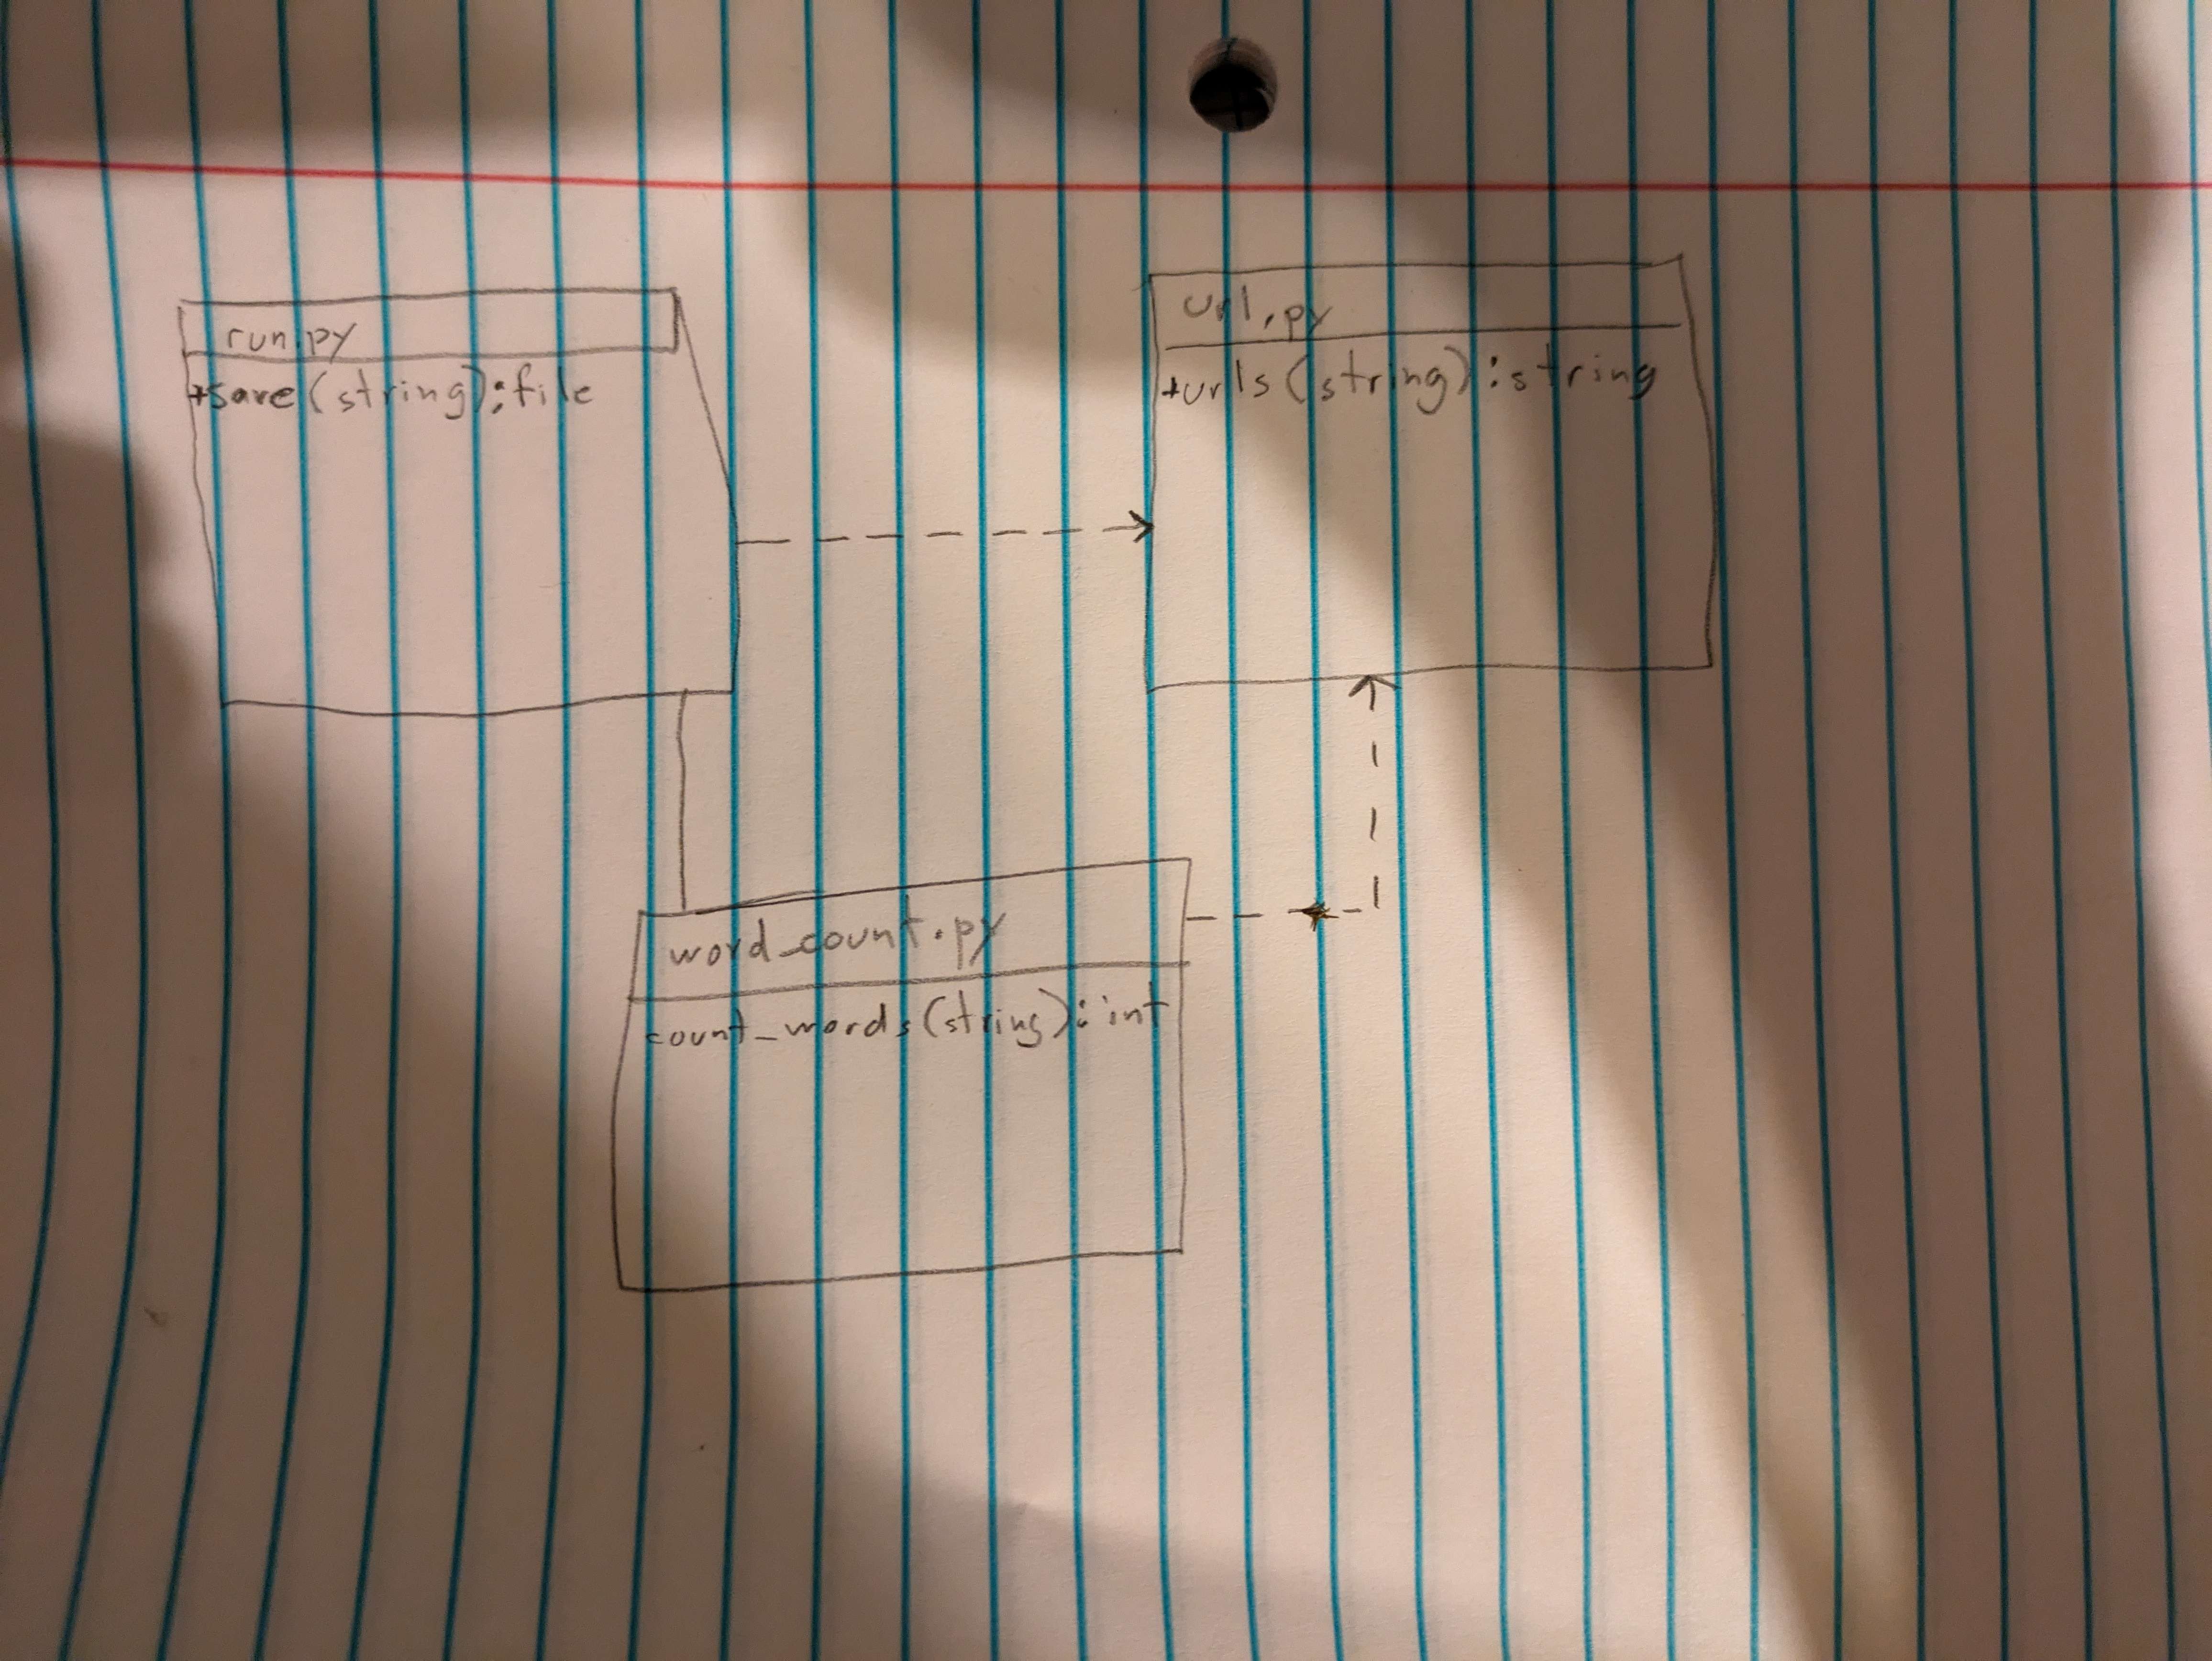 run.py
+save(string):file
url.py
+urls(string):string
word_count.py
count_words(string):int